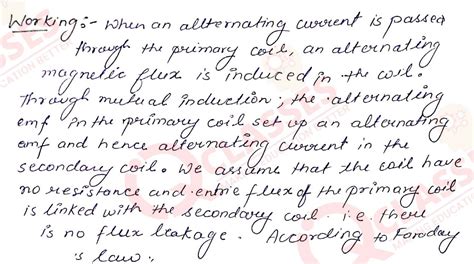 Working:- When an allternating current is passed
through the primary coil, an alternating
magnetic flux is induced in the coil.
Through mutual induction; the alternating
emf in the primary coil set up an alternating
emf and hence alternating current in the
secondary coil. We assume that the coil have
no resistance and entire flux of the primary coil
is linked with the secondary coil i.e. there
is no flux leakage. According to Faraday
's law:
CLASSES